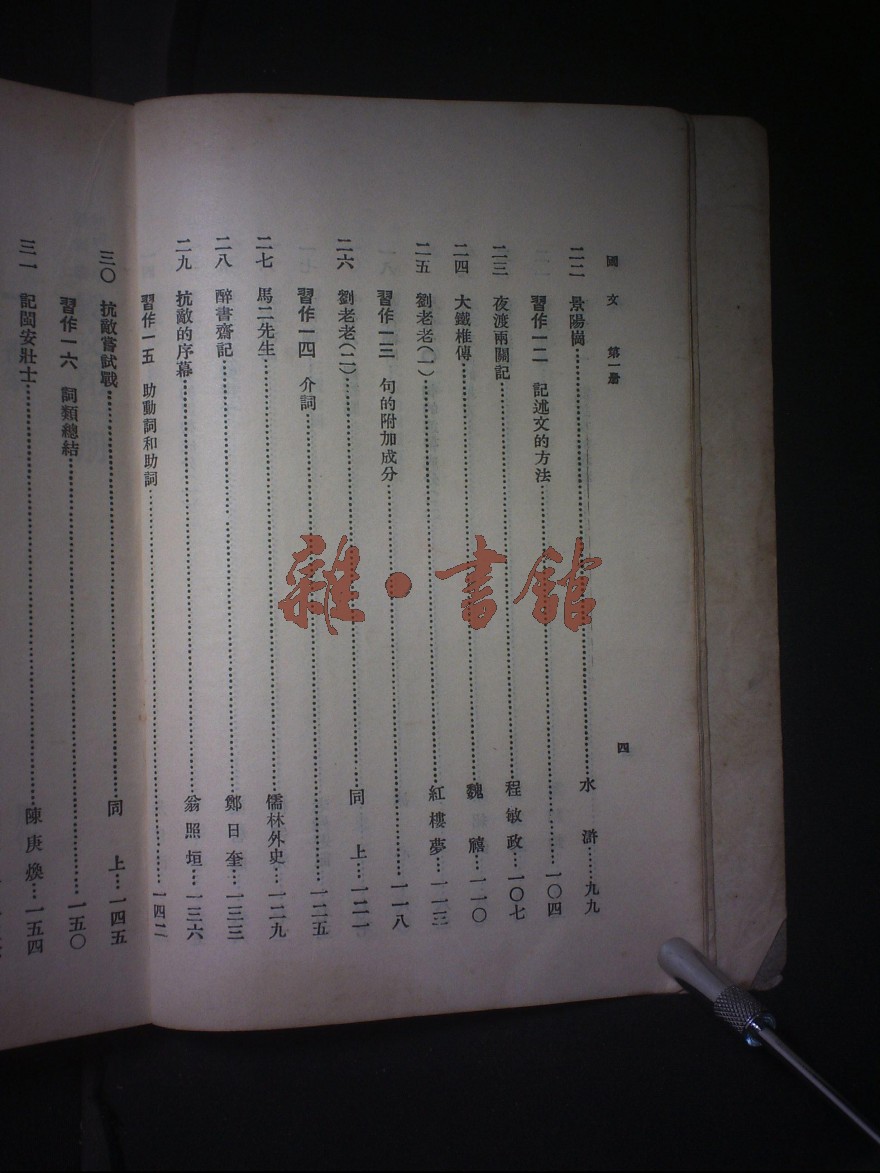 國文 第一册 四
二二 景陽崗……水滸……九九
習作一二 記述文的方法……一〇四
二三 夜渡兩關記……程敏政……一〇七
二四 大鐵椎傳……魏禧……一一〇
二五 劉老老(一)……紅樓夢……一一三
習作一三 句的附加成分……一一八
二六 劉老老(二)……同上……一二一
習作一四 介詞……一二五
二七 馬二先生……儒林外史……一二九
二八 醉書齋記……鄭日奎……一三三
二九 抗敵的序幕……翁照垣……一三六
習作一五 助動詞和助詞……一四二
三〇 抗敵嘗試戰……同上……一四五
習作一六 詞類總結……一五〇
三一 記閩安壯士……陳庚煥……一五四
雜·書館